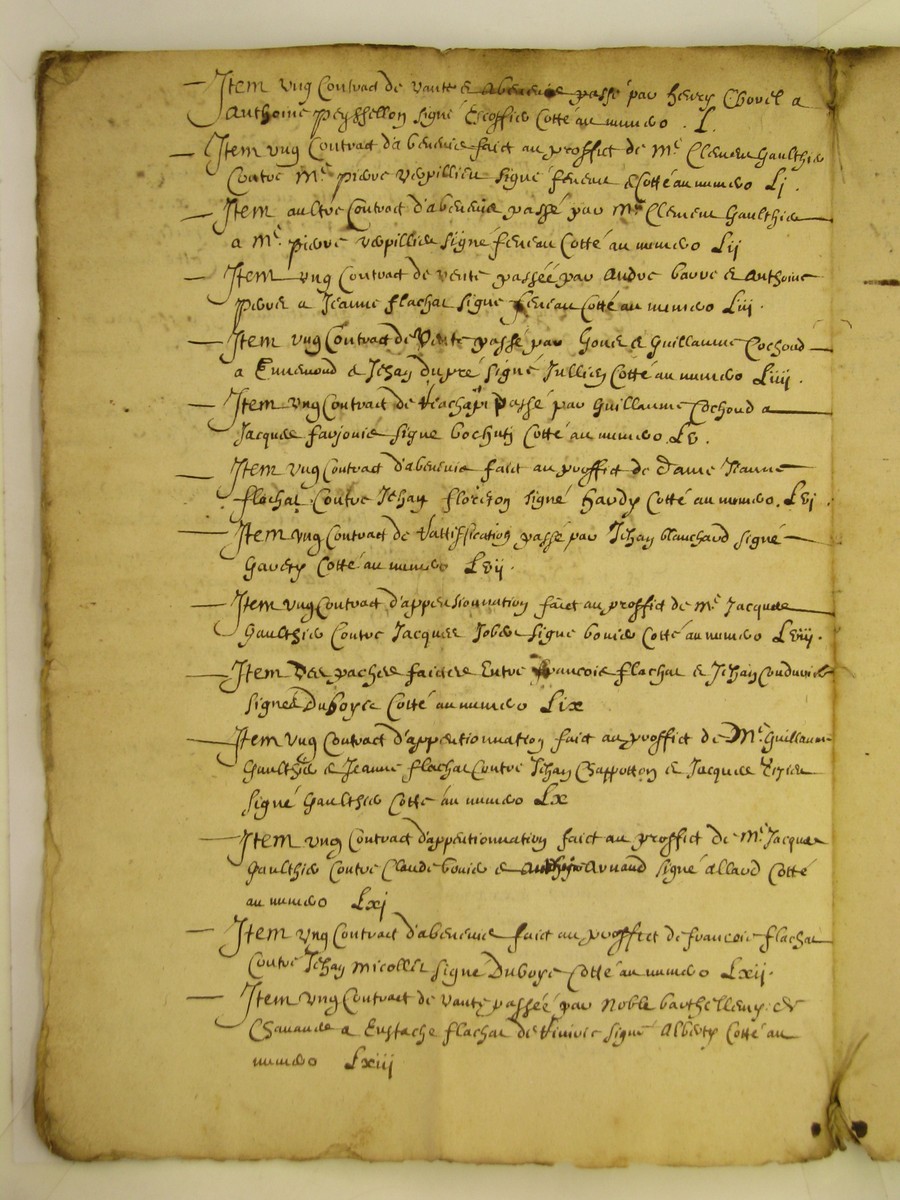 Item ung Contract de vante & abenevis passé par henry Chovel a
Anthoine peyssellon signé Escoffier Cotté au numero . L.
Item ung Contract d'abenevis faict au proffict de Me Clement Gaulthier
Contre Me pierre verpillieu signé feneau Cotté au numero Lj .
Item aultre Contract d'abenevis passé par Me Clement Gaulthier
a Me pierre verpillieu signé feneau Cotté au numero Lij
Item ung Contract de vente passéé par Andre barre & Anthoine
a Jeanne flachat signé feneau Cotté au numero Liij .
Item ung Contract de Vente passé par & Guillaume Cochoud
a Ennemond & Jehan dupré signé Jullien Cotté au numero Liiij .
Item ung Contract de reachapt passé par Guillaume Cochoud a
Jacques farjouis signe bochuti Cotté au numero . Lv .
Item ung Contract d'abenevis faict au proffict de dame Jeanne
flachat Contre Jehan florison signé hardy Cotté au numero . Lvj .
Item ung Contract de rattiffication passé par Jehan blanchard signé
Cotté au numero Lvij .
Item ung Contract d'appensionnation faict au proffict de me Jacques
Gaulthier Contre Jacques signe bouis Cotté au numero Lviij .
Item des paches faictes Entre francois flachat & Jehan
signes Duboys Cotté au numero Lix
Item ung Contract d'appentionnation faict au proffict de Me Guillaume
Gaulthier & Jeanne flachat Contre Jehan Chappotton & Jacques
signé Gaulthier Cotté au numero Lx
Item ung Contract d'appentionnation faict au proffict de Me Jacques
Gaulthier Contre Claude bouis & Anthoine Arnaud signé allard Cotté
au numero Lxj
Item ung Contract d'abenevis faict au proffict de francois flachat
Contre Jehan micollet signé Duboys Cotté au numero Lxij .
Item ung Contract de vante passéé par Noble barthellemy de
Chavanes a Eustache flachat de signé Alberty Cotté au
numero Lxiij